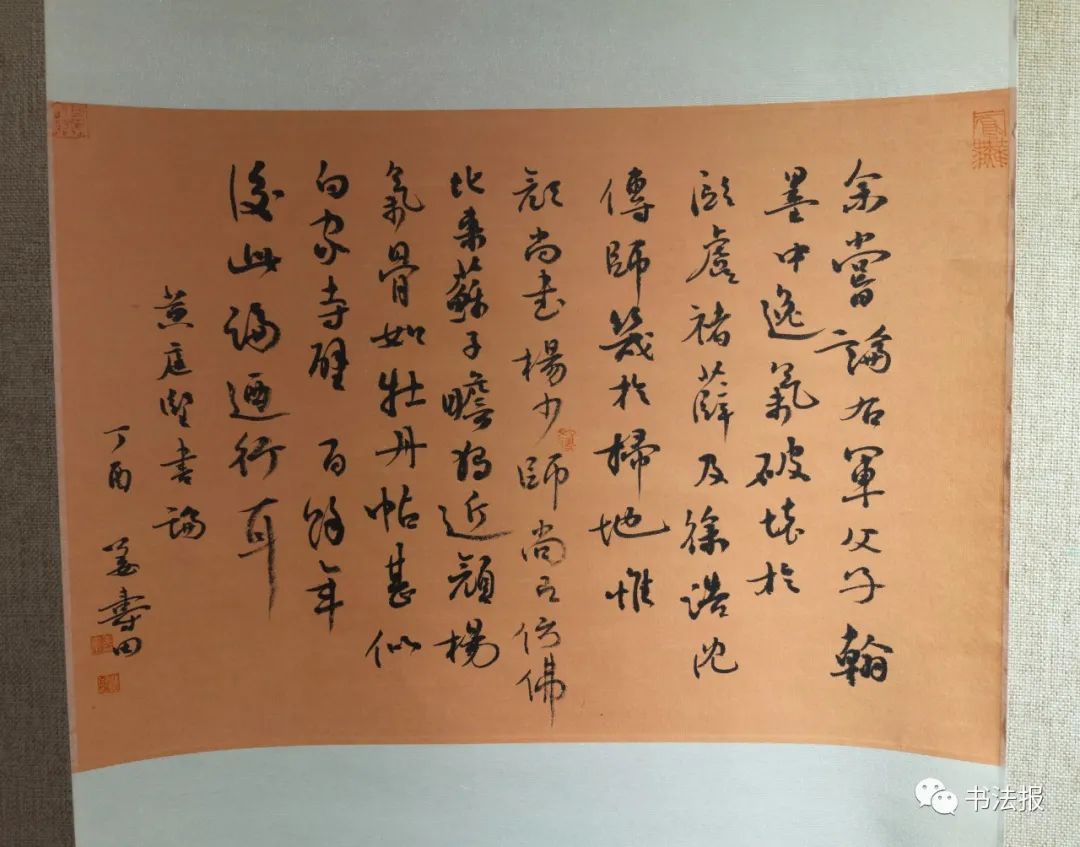 余嘗論右軍父子翰
墨中逸氣破壞於
歐虞褚薛及徐浩沈
傳師幾於掃地惟
顔尚書楊少師尚有仿佛
比来蘇子瞻獨近顔楊
氣骨如牡丹帖甚似
白家寺壁百餘年
後此論迺行耳
黄庭堅書論
丁酉 姜壽田
书法报